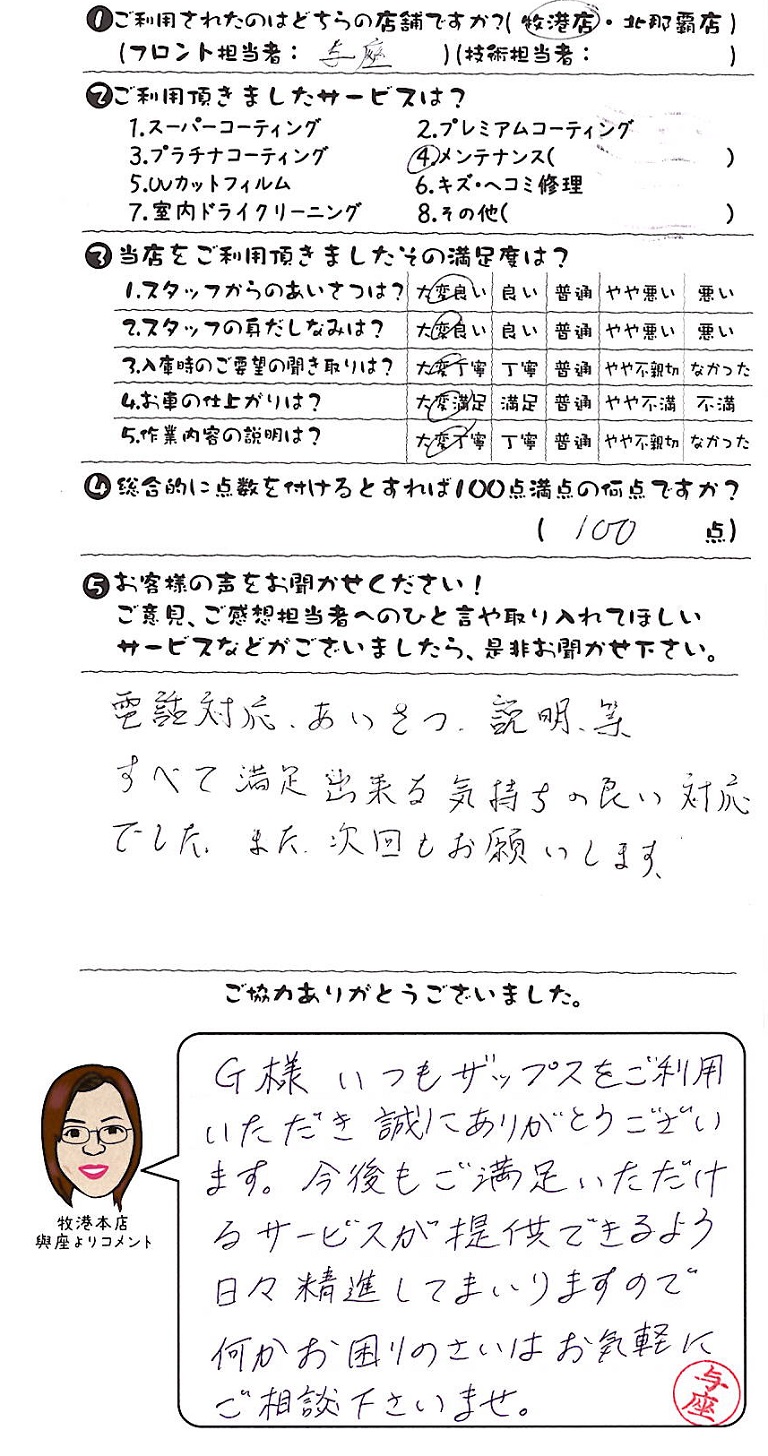 ❶ご利用されたのはどちらの店舗ですか?(牧港店・北那覇店)
(フロント担当者: 与座 )(技術担当者: )
❷ご利用頂きましたサービスは?
1.スーパーコーティング 2.プレミアムコーティング
3.プラチナコーティング ④メンテナンス( )
5.UVカットフィルム 6.キズ・ヘコミ修理
7.室内ドライクリーニング 8.その他( )
❸当店をご利用頂きましたその満足度は?
1.スタッフからのあいさつは? 大変良い 良い 普通 やや悪い 悪い
2.スタッフの身だしなみは? 大変良い 良い 普通 やや悪い 悪い
3.入庫時のご要望の聞き取りは? 大変丁寧 丁寧 普通 やや不親切 なかった
4.お車の仕上がりは? 大変満足 満足 普通 やや不満 不満
5.作業内容の説明は? 大変丁寧 丁寧 普通 やや不親切 なかった
❹総合的に点数を付けるとすれば100点満点の何点ですか?
( 100 点)
❺お客様の声をお聞かせください!
ご意見、ご感想担当者へのひと言や取り入れてほしい
サービスなどがございましたら、是非お聞かせ下さい。
電話対応、あいさつ、説明、等
すべて満足出来る気持ちの良い対応
でした。また、次回もお願いします。
ご協力ありがとうございました。
G様 いつもザップスをご利用
いただき誠にありがとうござい
ます。今後もご満足いただけ
るサービスが提供できるよう
日々精進してまいりますので
何かお困りのさいはお気軽に
ご相談下さいませ。
与座
牧港本店
與座よりコメント